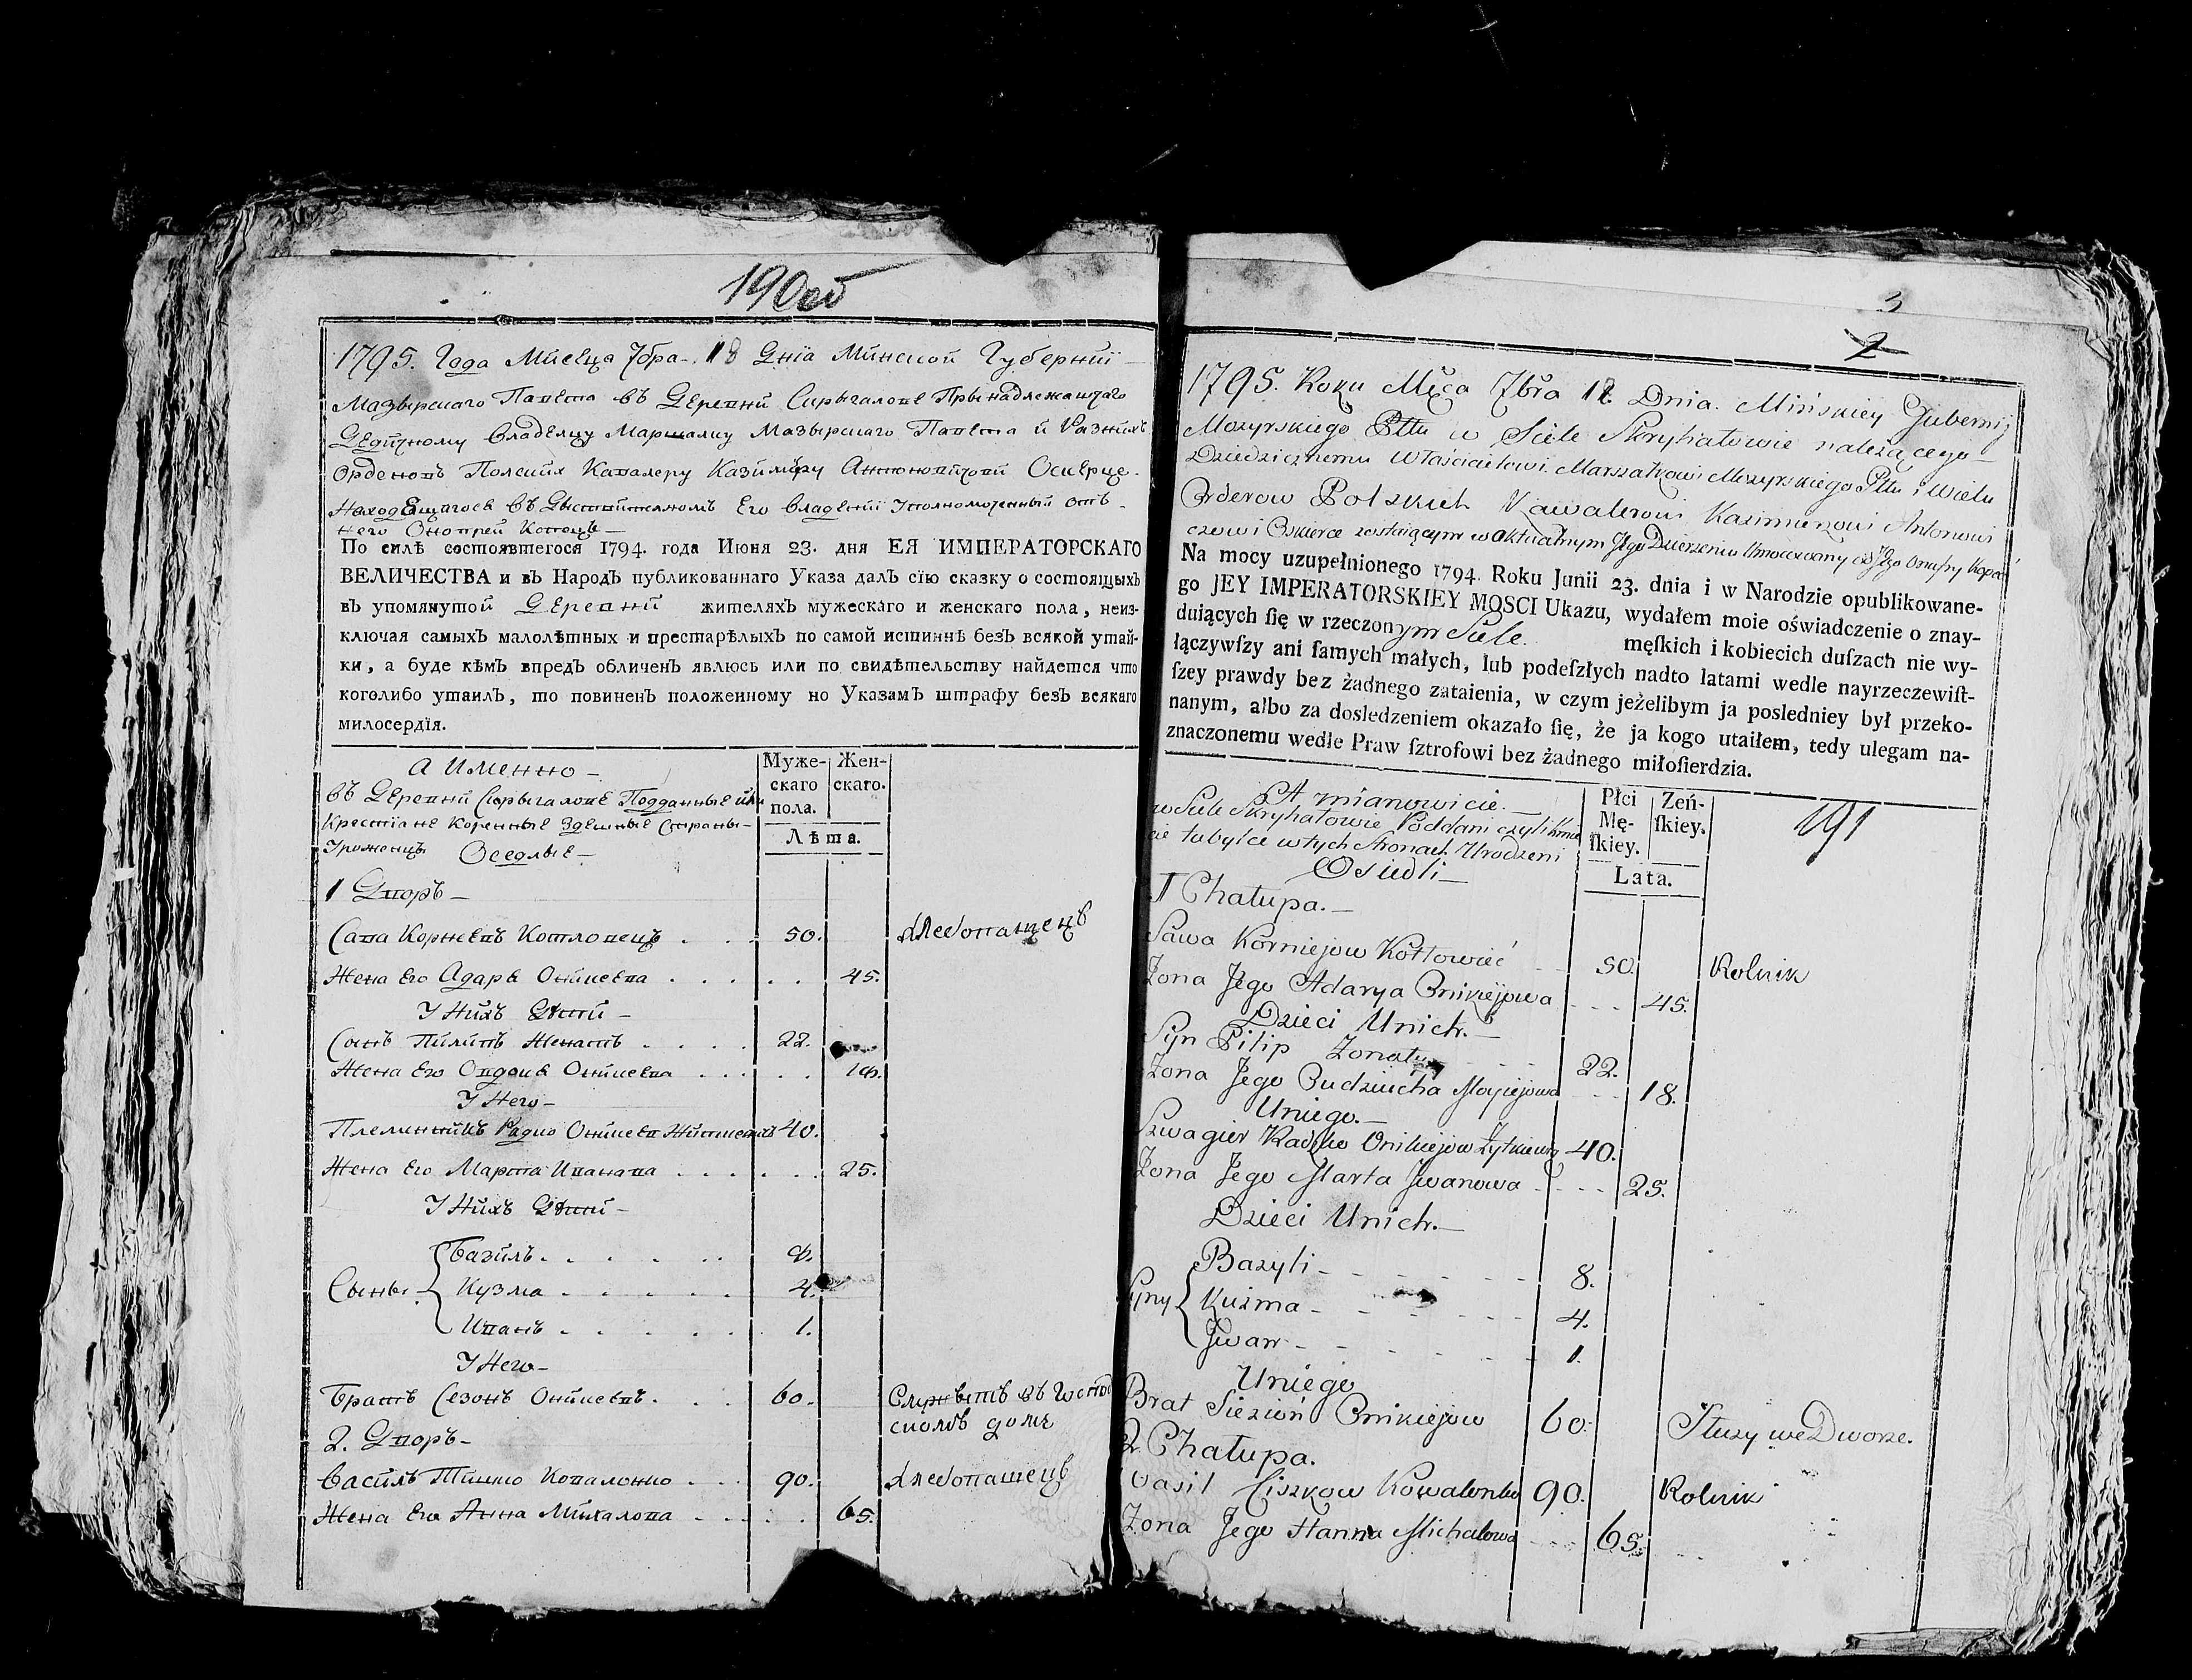 190об
1795. Года Мисеца 7бра. 18 Днїа Минской Губерниї
Мазырскаго Павета въ Деревни Скрыгалове Прынадлежаштаго
Дедичному Владелцу Маршалку Мазырскаго Павета и Разныхъ
Орденовъ Полских Кавалеру Казимѣру Антоновичови Оскерце.
Него Онопрей Копоць
По силѣ состоявшегося 1794. года Июня 23. дня ЕЯ ИМПЕРАТОРСКАГО
ВЕЛИЧЕСТВА и въ Народъ публикованнаго Указа далъ сїю сказку о состоящыхъ
въ упомянутой Деревни жителяхъ мужескаго и женскаго пола, неиз-
ключая самыхъ малолѣтныхъ и престарѣлыхъ по самой истиннѣ безъ всякой утай-
ки, а буде кѣмъ впредъ обличенъ явлюсь или по свидѣтельству найдется что
коголибо утаилъ, то повиненъ положенному но Указамъ штрафу безъ всякаго
милосердїя.
А Именно
въ Деревни Скрыгалове Подданные или
Крестїане Коренные Здешные Страны
Уроженцы Оседлые
Муже-
скаго
пола.
Жен-
скаго.
Лѣта.
1 Дворъ
Сава Корнеевъ Котловецъ 50. хлебопашецъ
Жена Его Адарѣ Оникеева 45.
У Нихъ Дѣти
Сынъ Пилипъ Женатъ 22.
Жена Его 18.
У Него
Племинникъ Радко Оникеев 40.
Жена Его Марта Иванава 25.
У Нихъ Дѣти
Сыны Базиль 8.
Кузма 4.
Иванъ 1.
У Него
Братъ Сезонъ Оникеевъ 60. Служытъ въ Господ
скомъ доме
2. Дворъ
Василь Тишко Коваленко 90. хлебопашецъ
Жена Его Анна Михалова 65.
3
2
1795. Roku Mśca 7bra 18. Dnia. Mińskiey Gubernij
Mozyrskiego Pttu w Siele Skryhałowie należącego
Dziedzicznemu Właścicielowi Marszałkowi Mozyrskiego Pttu i Wielu
Orderow Polskich Kawalerowi Kazimierzowi Antonowi
czowi Oskierce zostaiącym w Aktualnym Jego Dzierzeniu Umocowany od Jego Onufry Kopoć
Na mocy uzupełnionego 1794. Roku Junii 23. dnia i w Narodzie opublikowane-
go JEY IMPERATORSKIEY MOSCI Ukazu, wydałem moie oświadczenie o znay-
duiących ſię w rzeczonym Siele męſkich i kobiecich duſzach nie wy-
łączywſzy ani ſamych małych, lub podeſzłych nadto latami wedle nayrzeczewiſt-
ſzey prawdy bez żadnego zataienia, w czym jeżelibym ja posledniey był przeko-
nanym, albo za dosledzeniem okazało ſię, że ja kogo utaiłem, tedy ulegam na-
znaczonemu wedle Praw ſztrofowi bez żadnego miłoſierdzia.
A mianowicie.
w Siele Skryhałowie Poddani czyli
tubylce w tych Stronach Urodzeni
Osiedli
Płci
Mę-
ſkiey.
Zeń-
ſkiey.
Lata.
191
1 Chałupa.
Sawa Korniejow Kotłowieć 50. Rolnik
Żona Jego Adarya Onikiejowa 45.
Dzieci Unich.
Syn Pilip Żonaty 22.
Żona Jego Eudziucha 18.
Uniego.
Szwagier Radzko Onikiejow Żytkiewicz 40.
Żona Jego Marta Jwanowa 25.
Dzieci Unich.
Syny Bazyli 8.
Kuzma 4.
Jwan 1.
Uniego
Brat Siezioń Onikiejow 60. Służy we Dworze.
2. Chałupa.
Wasil Ciszkow Kowalenko 90. Rolnik
Żona Jego Hanna Michałowa 65.